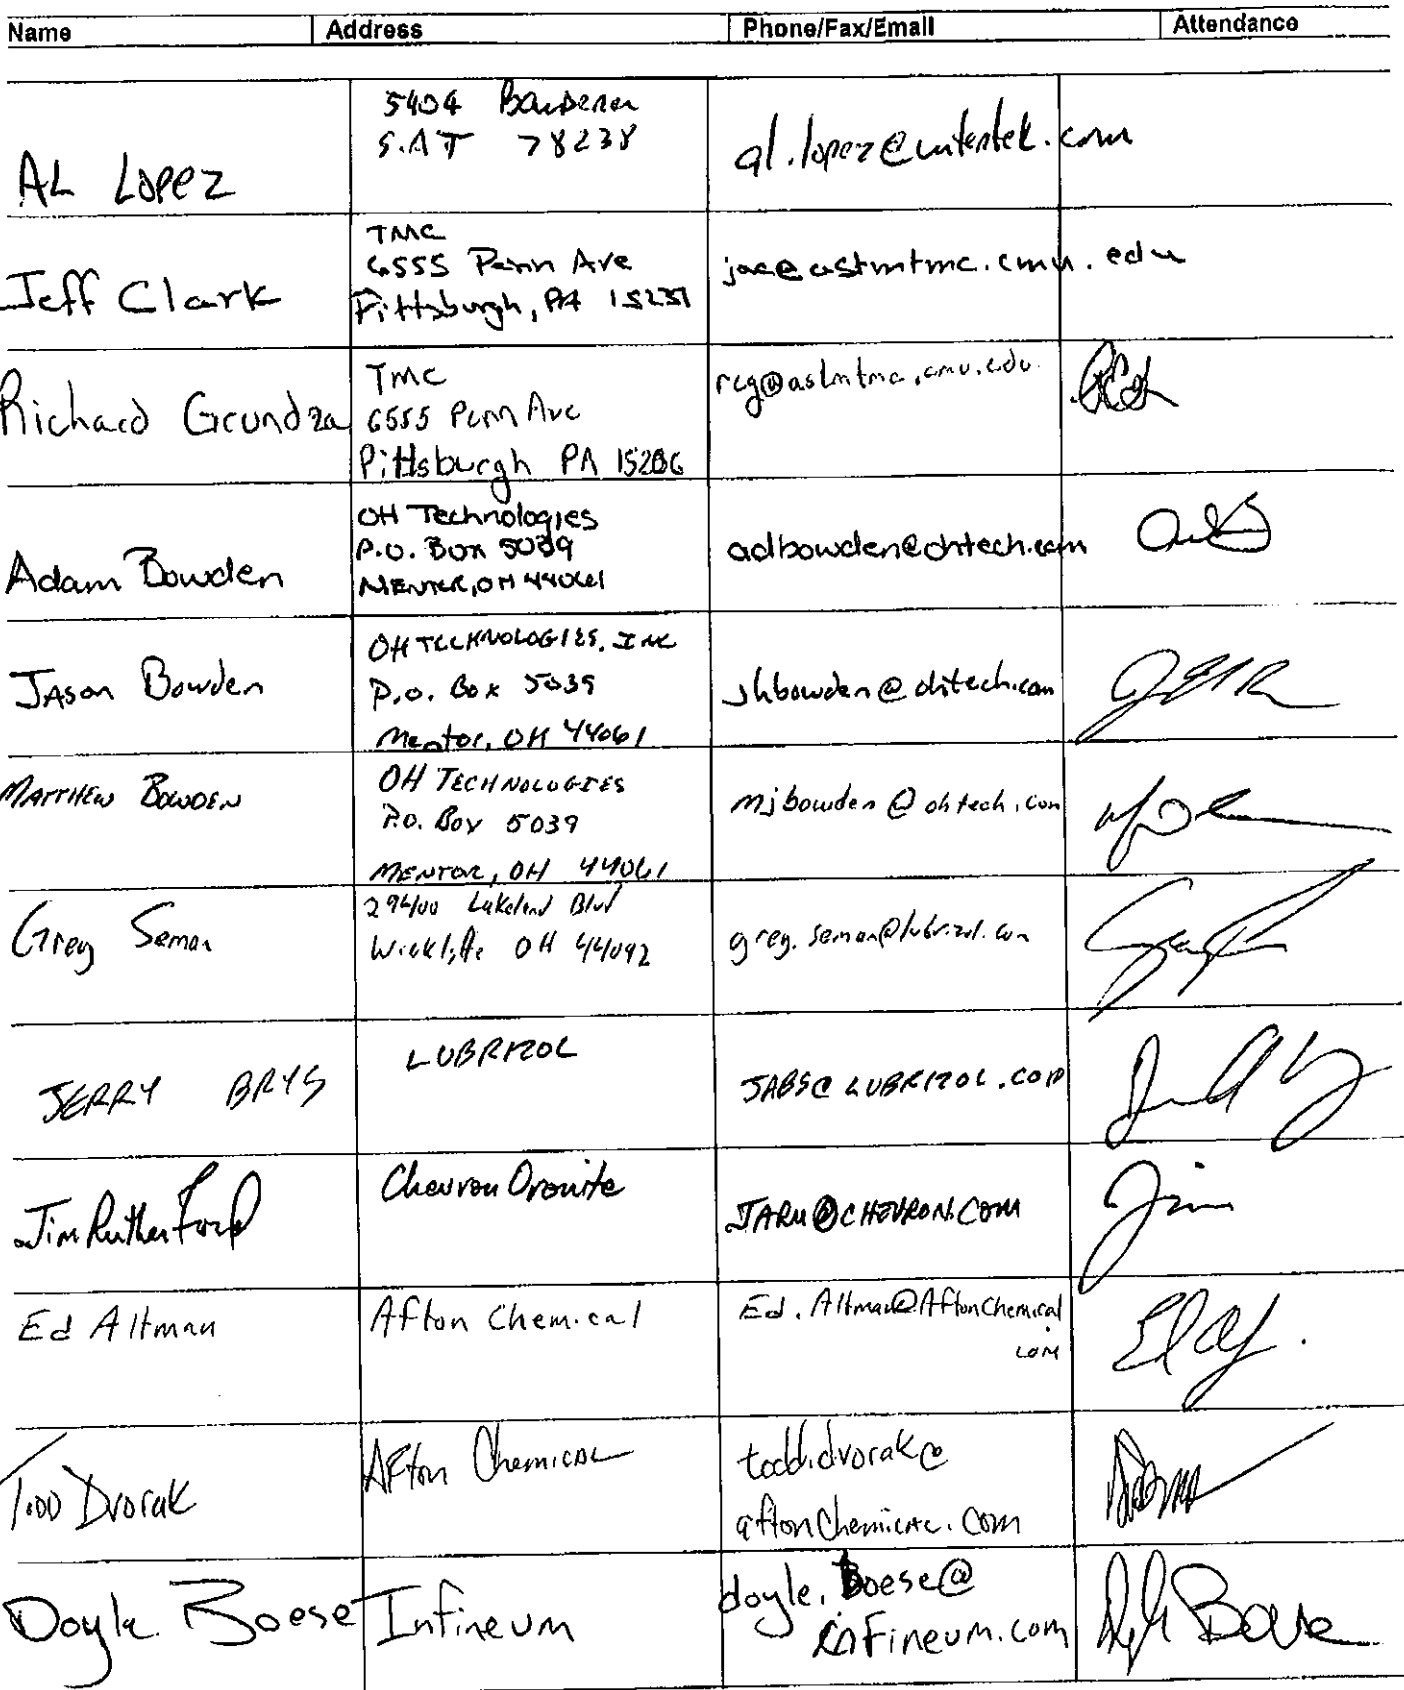 Name Address Phone/Fax/Email Attendance
AL Lopez
5404 Bandera
S.A T 78238
al.lopez@intertek.com
Jeff Clark
TMC
6555 Penn Ave
Pittsburgh, PA
jac@astmtmc.cmu.edu
Richard Grundza
TMC
6555 Penn Ave
Pittsburgh PA 15206
rcg@astmtmc.cmu.edu
Adam Bowden
OH Technologies
P.O. Box 5039
MENTOR, OH 44061
adbowden@ohtech.com
JASon Bowden
OH TECHNOLOGIES, INC
P.O. Box 5039
Mentor, OH 44061
jhbowden@ohtech.com
MATTHEW BOWDEN
OH TECHNOLOGIES
P.O. Box 5039
MENTOR, OH 44061
mjbowden@ohtech.com
Greg Seman
29400 Lakeland Blvd
Wickliffe OH 44092
greg.seman@lubrizol.com
JERRY BRYS
LUBRIZOL
JABS@LUBRIZOL.COM
Jim Rutherford
Chevron Oronite
JARU@CHEVRON.COM
Jim
Ed Altman
Afton Chemical
Ed.Altman@AftonChemical
.com
TODD Dvorak
AFton Chemical
todd.dvorak@
aftonchemical.com
Doyle Boese
Infineum
doyle.boese@
infineum.com